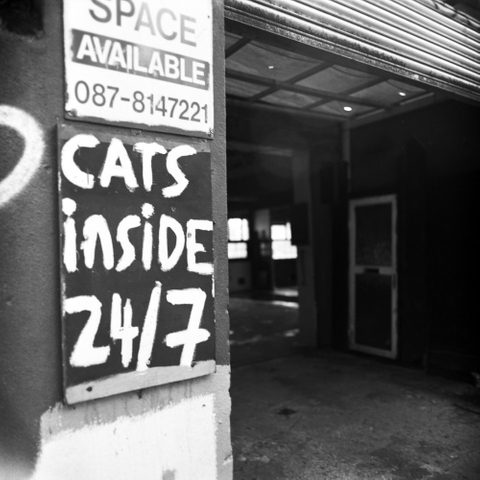 SPACE
AVAILABLE
087-8147221
CATS
inSiDE
24/7